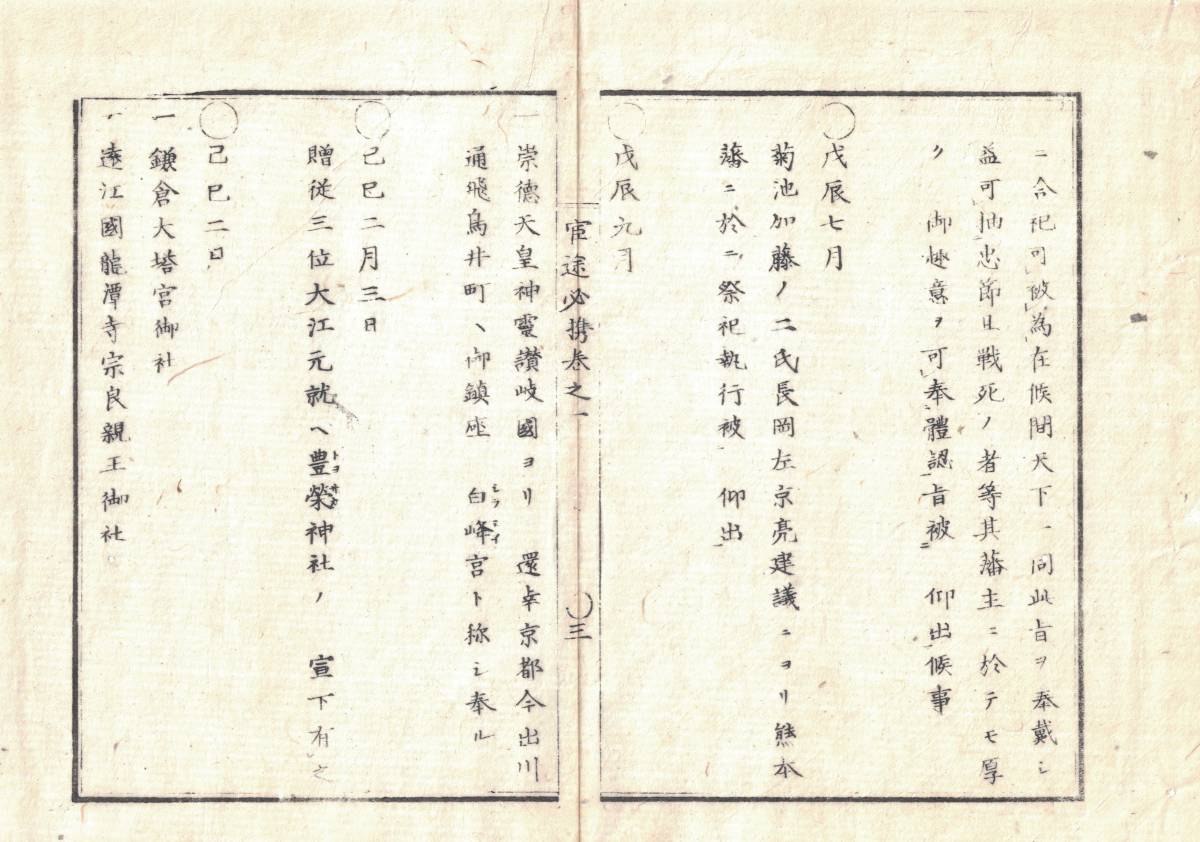 ニ合祀可被為在候間天下一同此旨ヲ奉戴シ
益可抽忠節且戦死ノ者等其藩主ニ於テモ厚
ク 御趣意ヲ可奉體認旨被 仰出候事
〇戊辰七月
菊池加藤ノ二氏長岡左京亮建議ニヨリ熊本
藩ニ於ニ祭祀執行被 仰出
〇戊辰九月
官途必携巻之一 〇三
一崇德天皇神霊讃岐國ヨリ 還幸京都今出川
通飛鳥井町ヘ御鎮座 白峰宮ト称シ奉ル
〇己巳二月三日
贈従三位大江元就ヘ豊榮神社ノ 宣下有之
〇己巳二日
一鎌倉大塔宮御社
一遠江國龍潭寺宗良親王御社